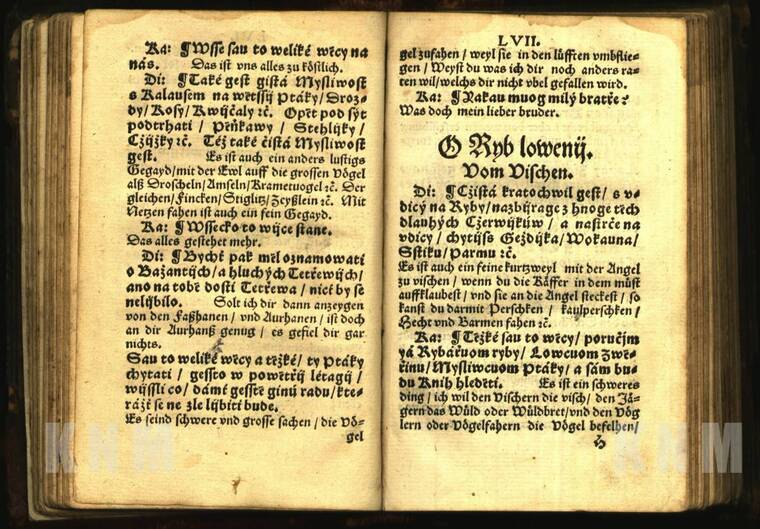 Ka: ¶ Wsse sau to weliké wěcy na
nás. Das ist vns alles zu köstlich.
Di: ¶ Také gest gistá Mysliwost
s Kalausem na wětssij Ptáky/ Droz-
dy/ Kosy/ Kwijčaly ꝛč. Opět pod sýt
podtrhati / Pěňkawy / Stehlijky /
Cžijžky ꝛč. Též také čistá Mysliwost
gest. Es ist auch ein anders lustigs
Gegayd/ mit der Ewl auff die grossen Vögel
alß Droscheln/ Amseln/ Krametuogel ꝛc. Der
gleichen/ Fincken/ Stiglitz/ Zeyßlein ꝛc. Mit
Netzen fahen ist auch ein fein Gegayd.
Ka: ¶ Wssecko to wijce stane.
Das alles gestehet mehr.
Di: ¶ Bychť pak měl oznamowati
o Bažantijch/ a hluchých Tetřewijch/
ano na tobě dosti Tetřewa / nicť by se
nelijbilo. Solt ich dir dann anzeygen
von den Faßhanen/ vnd Aurhanen/ ist doch
an dir Aurhanß genug / es gefiel dir gar
nichts.
Sau to weliké wěcy a těžké/ ty Ptáky
chytati / gessto w powětřij létagij /
wijssli co/ dámť gesstě ginú radu/ kte-
rážť se ne zle lijbiti bude.
Es seind schwere vnd grosse sachen / die Vö-
gel
LVII.
gel zufahen / weyl sie in den lüfften vmbflie-
gen / Weyst du was ich dir noch anders ra-
ten wil/ welchs dir nicht vbel gefallen wird.
Ka: ¶ Nakau muog milý bratře?
Was doch mein lieber bruder.
O Ryb lowenij.
Vom Vischen.
Di: ¶ Cžistá kratochwil gest/ s v-
dicý na Ryby/ nazbijrage z hnoge těch
dlauhých Cžerwijkůw / a nastrče na
vdicy / chytijš Geždijka/ Wokauna/
Sstiku/ Parmu ꝛč.
Es ist auch ein feine kurtzweyl mit der Angel
zu vischen / wenn du die Käffer in dem müst
auffklaubest / vnd sie an die Angel steckest / so
kanst du darmit Perschken / kaulperschken/
Hecht vnd Barmen fahen ꝛc.
Ka: ¶ Těžké sau to wěcy/ poručijm
yá Rybářuom ryby/ Lowcuom Zwě-
řinu/ Mysliwcuom Ptáky/ a sám bu-
du Knih hleděti. Es ist ein schweres
ding / ich wil den Vischern die visch/ den Jä-
gern das Wüld oder Wüldbret/ vnd den Vög
lern oder Vögelfahern die vögel befelhen/
H
KNM
KNM